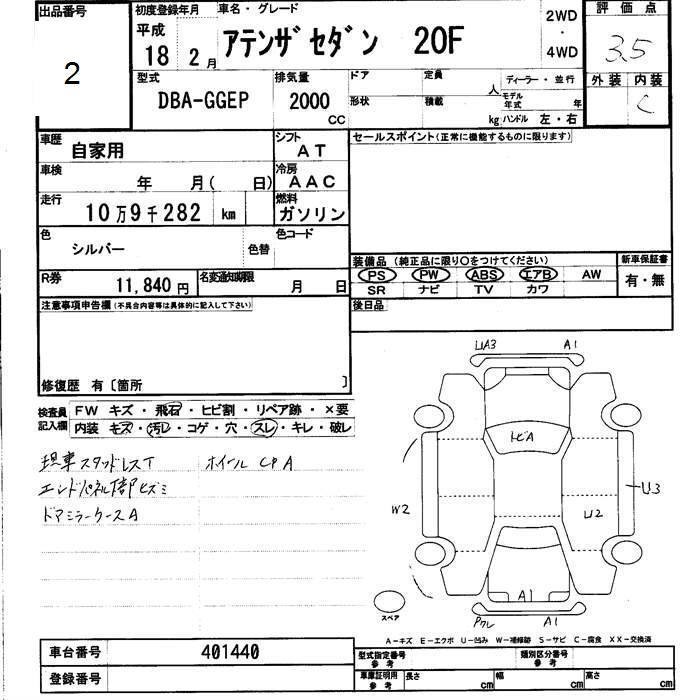 出品番号
2
初度登録年月 車名・グレード
平成
18 2 月
アテンザセダン 20F
2WD
・
4WD
評価点
3.5
外装 内装
C
型式
DBA-GGEP
排気量
2000
CC
ドア
定員
人
ディーラー・並行
形状
積載
kg
モデル年式 年
ハンドル 左・右
車歴
自家用
シフト
AT
セールスポイント(正常に機能するものに限ります)
車検
年 月( 日)
冷房
AAC
走行
10万9千282 km
燃料
ガソリン
色
シルバー
色替
色コード
装備品 (純正品に限り○をつけてください)
新車保証書
PS PW ABS エアB AW
有・無
SR ナビ TV カワ
R券
11,840 円
名変通知期限
月 日
後日品
注意事項申告欄(不具合内容等は具体的に記入して下さい)
修復歴 有〔箇所 〕
検査員
記入欄
FW キズ・飛石・ヒビ割・リペア跡・×要
内装 キズ・汚レ・コゲ・穴・スレ・キレ・破レ
現車スタッドレスT ホイールCPA
エンドパネル下部ヒズミ
ドアミラーケースA
UA3 A1
トビA
W2
U2
U3
A1
スペア
Pワレ A1
A-キズ E-エクボ U-凹み W-補修跡 S-サビ C-腐食 XX-交換済
車台番号
401440
登録番号
型式指定番号
参考
類別区分番号
参考
車庫証明用
参考
長さ cm
幅 cm
高さ cm